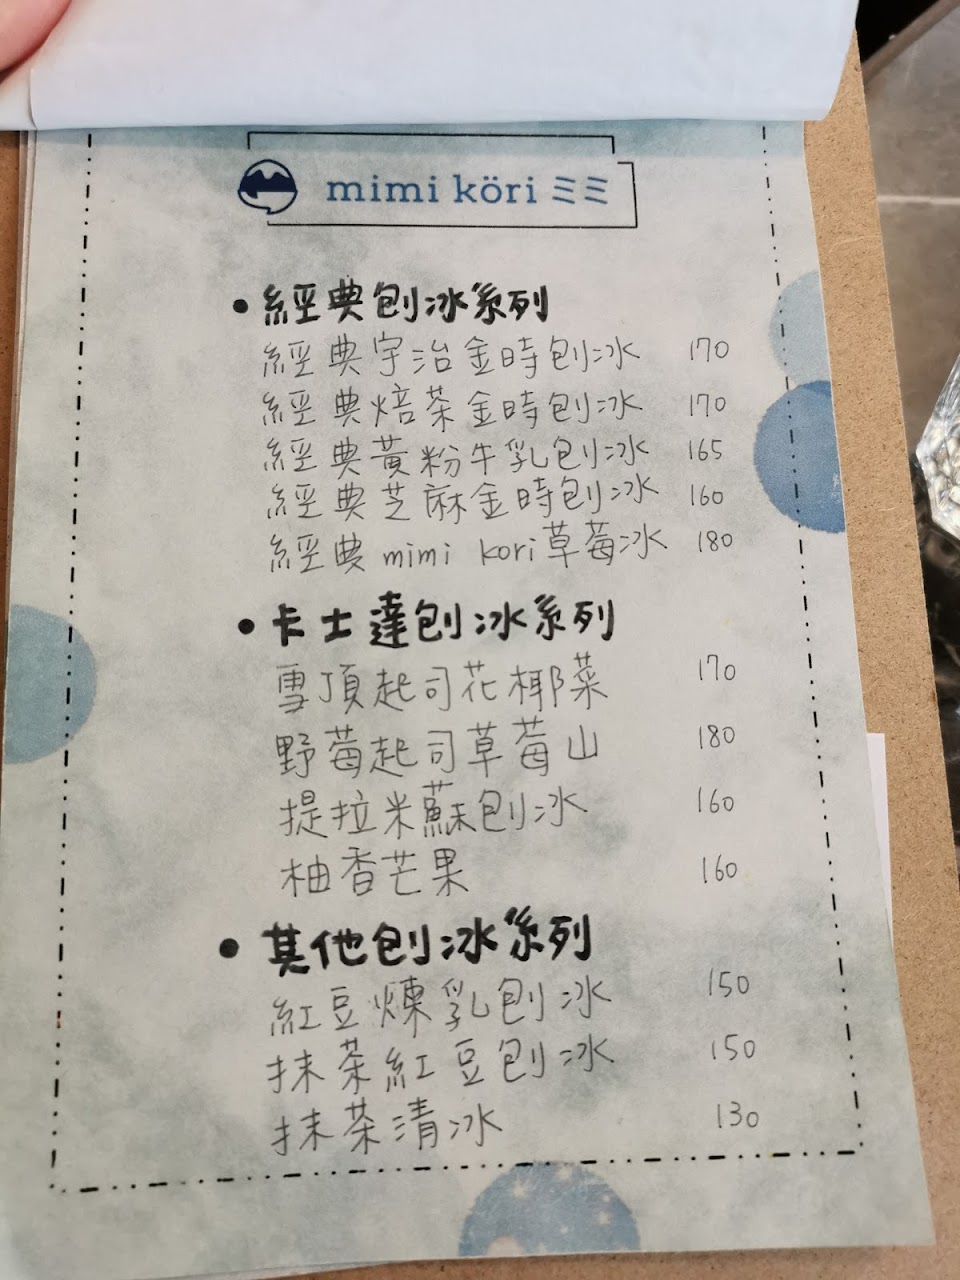 mimi köri ミミ
• 經典刨冰系列
經典宇治金時刨冰 170
經典焙茶金時刨冰 170
經典黃粉牛乳刨冰 165
經典芝麻金時刨冰 160
經典mimi kori草莓冰 180
• 卡士達刨冰系列
雪頂起司花椰菜 170
野莓起司草莓山 180
提拉米蘇刨冰 160
柚香芒果 160
• 其他刨冰系列
紅豆煉乳刨冰 150
抹茶紅豆刨冰 150
抹茶清冰 130